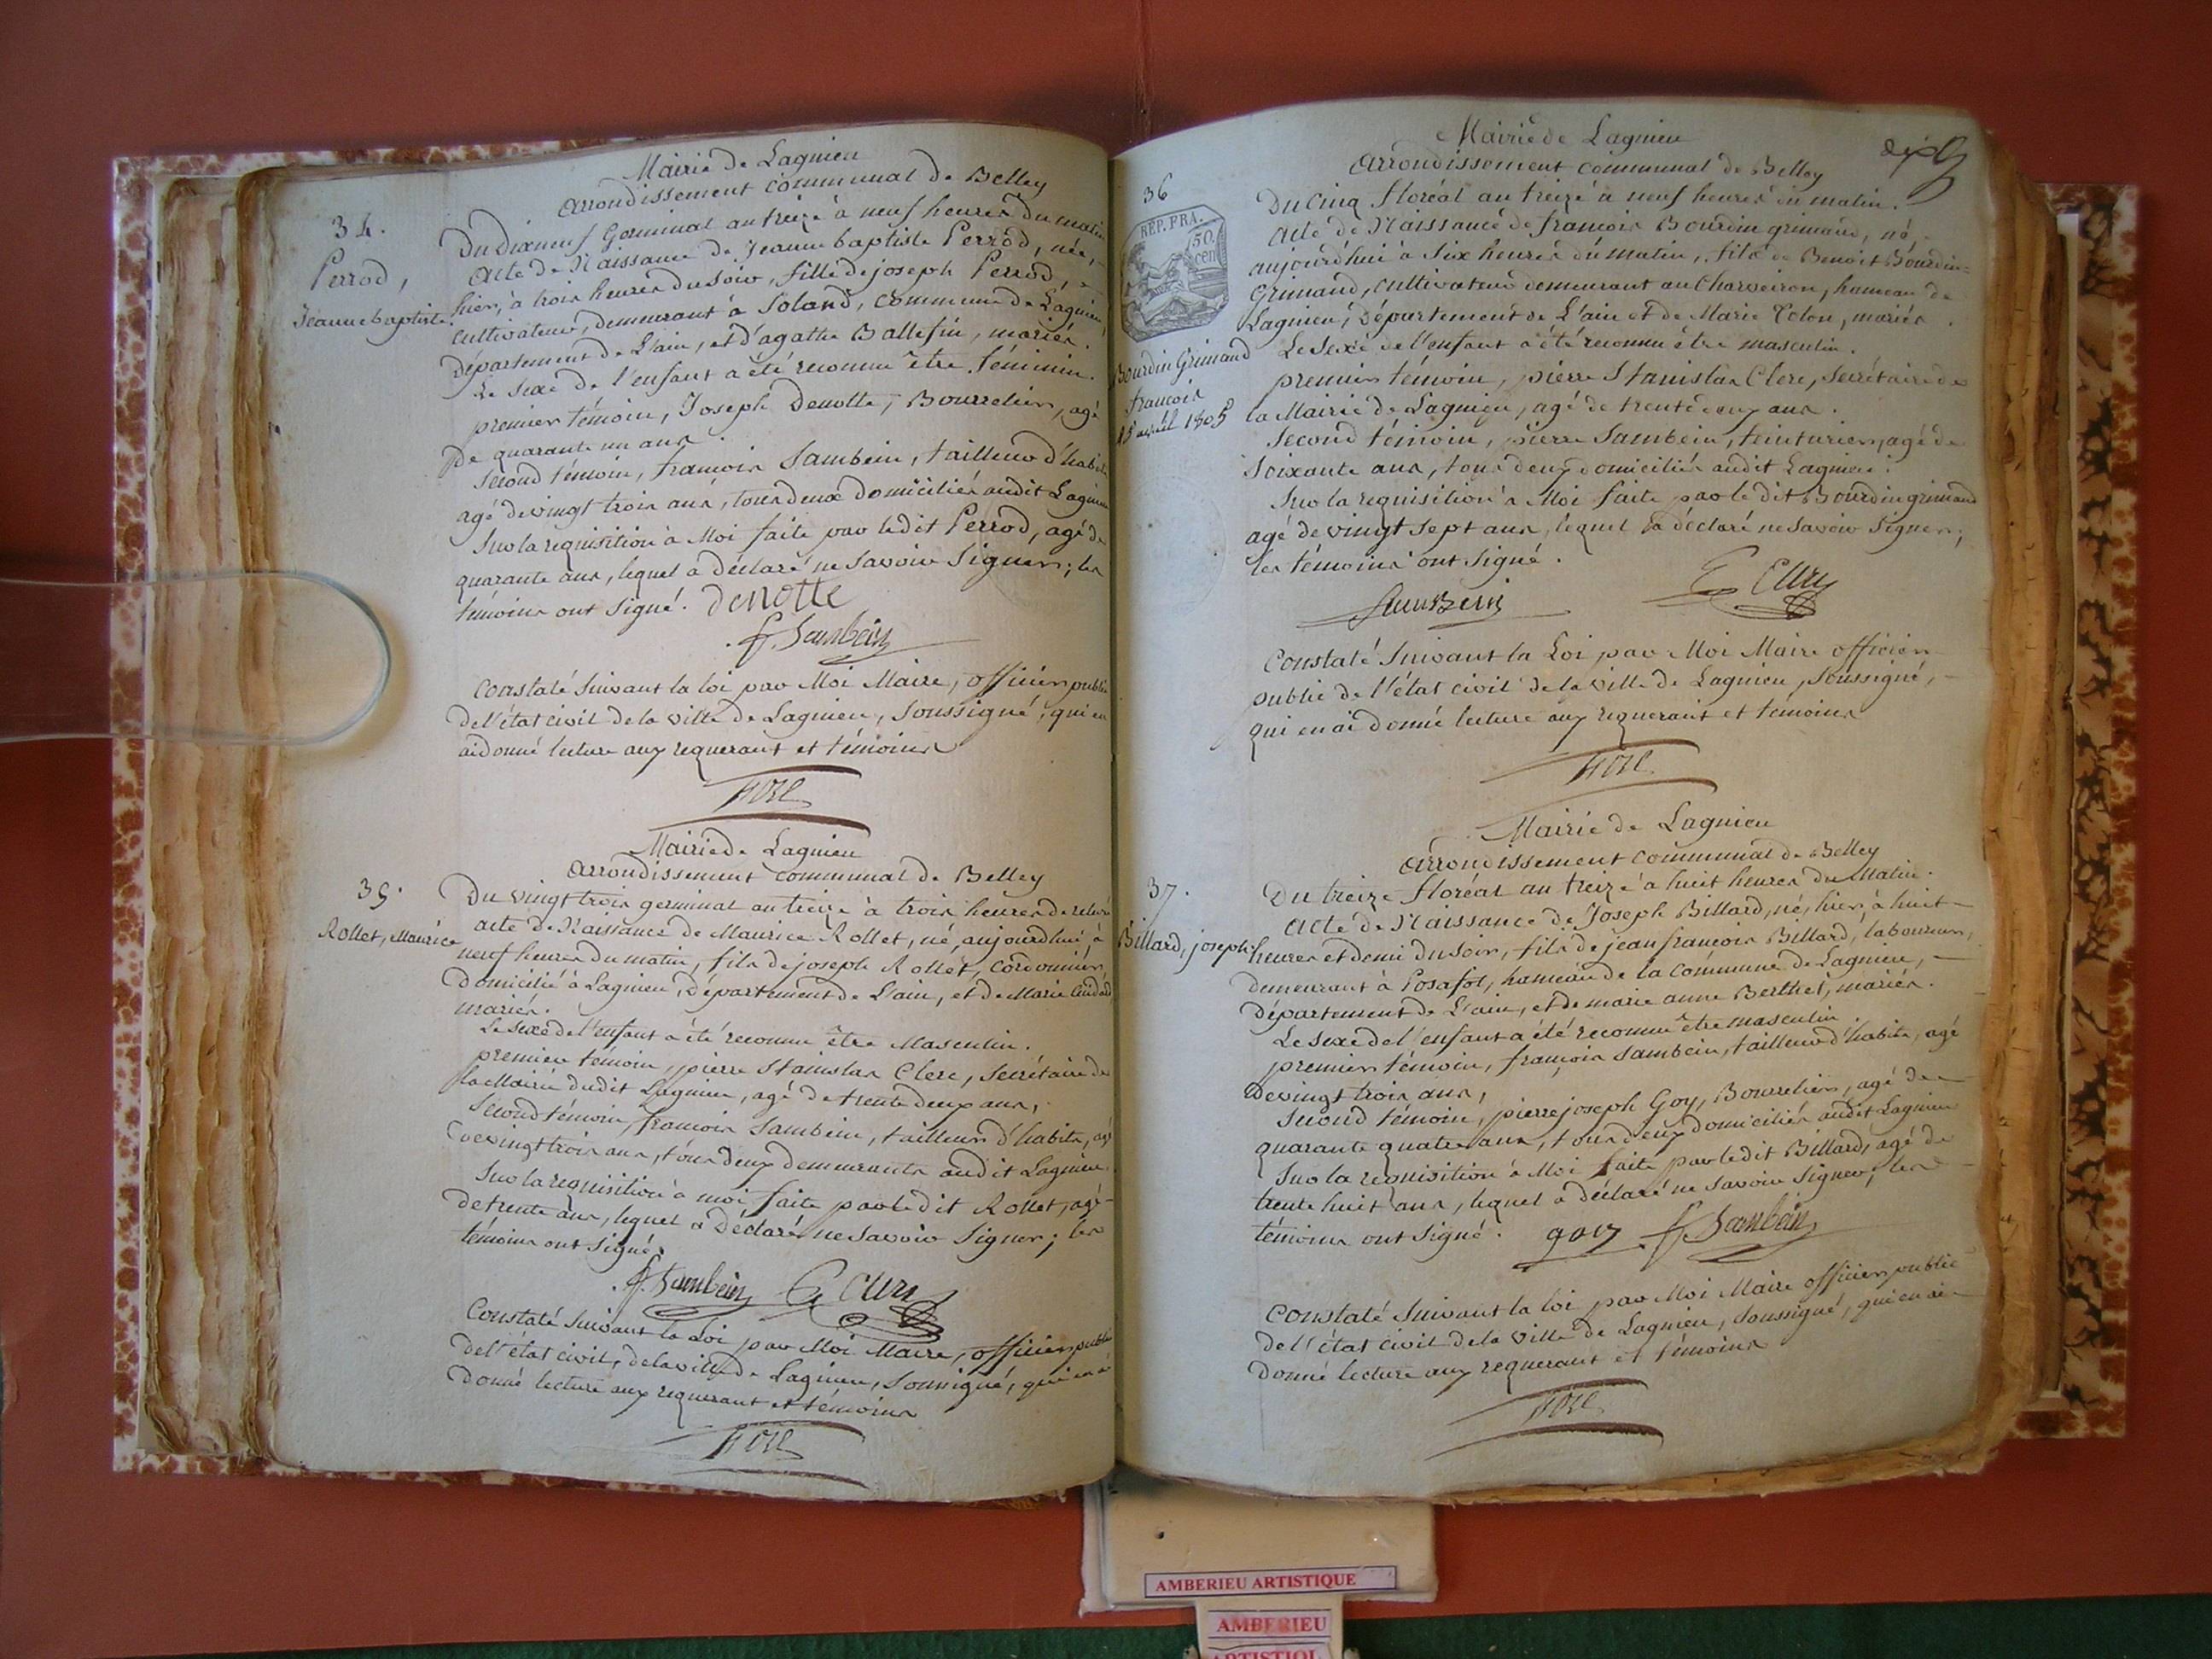 Mairie de Lagnieu
arrondissement communal de Belley
34.
Perrod,
Jeanne baptiste
Du dixneuf Germinal an treize à neuf heures du matin
acte de Naissance de Jeanne baptiste Perrod, née,
hier, à trois heures du soir, fille de joseph Perrod,
cultivateur, demeurant à Soland, commune de Lagnieu,
Département de L'ain, et d'agathe Ballefin, mariés.
Le sexe de l'enfant a été reconnu être féminin.
premier témoin, Joseph Denotte, Bourrelier, agé
de quarante un ans.
Second témoin, françois Sambein, tailleur d'habits
agé de vingt trois ans, tous deux domiciliés audit Lagnieu
Sur la requisition à Moi faite par ledit Perrod, agé de
quarante ans, lequel a déclaré ne savoir Signer; les
témoins ont signé. denotte
f. Sambein
Constaté Suivant la loi par Moi Maire, officier public
de l'état civil de la ville de Lagnieu, Soussigné, qui en
ai donné lecture aux requerant et témoins
Mairie de Lagnieu
arrondissement communal de Belley
35.
Rollet, Maurice
Du vingt trois germinal an treize à trois heures de relevé
acte de Naissance de Maurice Rollet, né aujourdhui, à
neuf heures du matin, fils de joseph Rollet, cordonnier,
Domicilié à Lagnieu, Département de L'ain, et de Marie
mariés.
Le sexe de l'enfant a été reconnu être Masculin.
premier témoin, pierre Stanislas Clerc, Secrétaire de
la Mairie dudit Lagnieu, agé de trente deux ans,
Second témoin, françois Sambein, tailleur d'habits, agé
de vingt trois ans, tous deux demeurants audit Lagnieu.
Sur la requisition à moi faite par ledit Rollet, agé
de trente ans, lequel a Déclaré ne savoir Signer; les
témoins ont Signé.
f. Sambein Clerc
Constaté Suivant la Loi par Moi Maire, officier public
de l'état civil, de la ville de Lagnieu, Soussigné, qui en ai
Donné lecture aux requerant et témoins
Mairie de Lagnieu
arrondissement communal de Belley
36
REP. FRA.
50
cen
Bourdin Grimaud
françois
avril 1805
Du Cinq floréal an treize à neuf heures du matin.
acte de Naissance de françois Bourdin grimaud, né
aujourd'hui à Six heures du matin, fils de Benoit Bourdin-
Grimaud, cultivateur demeurant au Charveiron, hameau de
Lagnieu, Département de L'ain et de Marie Tolon, mariés.
Le Sexe de l'enfant a été reconnu être masculin.
premier témoin, pierre Stanislas Clerc, Secrétaire de
la Mairie de Lagnieu, agé de trente deux ans.
Second témoin, pierre Sambein, teinturier, agé de
Soixante ans, tous deux domiciliés audit Lagnieu.
Sur la requisition à Moi faite par le dit Bourdin grimaud
agé de vingt sept ans, lequel a déclaré ne savoir Signer;
les témoins ont signé.
Sambein Clerc
Constaté Suivant la Loi par Moi Maire officier
public de l'état civil de la ville de Lagnieu, Soussigné,
qui en ai donné lecture aux requerant et témoins
Mairie de Lagnieu
arrondissement communal de Belley
37.
Billard, joseph
Du treize floréal an treize à huit heures du Matin.
acte de Naissance de Joseph Billard, né, hier, à huit
heures et demi du soir, fils de jean françois Billard, laboureur,
demeurant à Posafol, hameau de la commune de Lagnieu,
Département de L'ain, et de marie anne Berthet, mariés.
Le sexe de l'enfant a été reconnu être masculin.
premier témoin, françois Sambein, tailleur d'habits, agé
de vingt trois ans,
Second témoin, pierre joseph Goy, Bourrelier, agé de
quarante quatre ans, tous deux domiciliés audit Lagnieu
Sur la requisition à Moi faite par ledit Billard, agé de
trente huit ans, lequel a déclaré ne savoir signer; les
témoins ont signé. goy f. Sambein
Constaté Suivant la loi par Moi Maire officier public
de l'état civil de la ville de Lagnieu, Soussigné, qui en ai
donné lecture aux requerant et témoins
AMBERIEU ARTISTIQUE
AMBERIEU